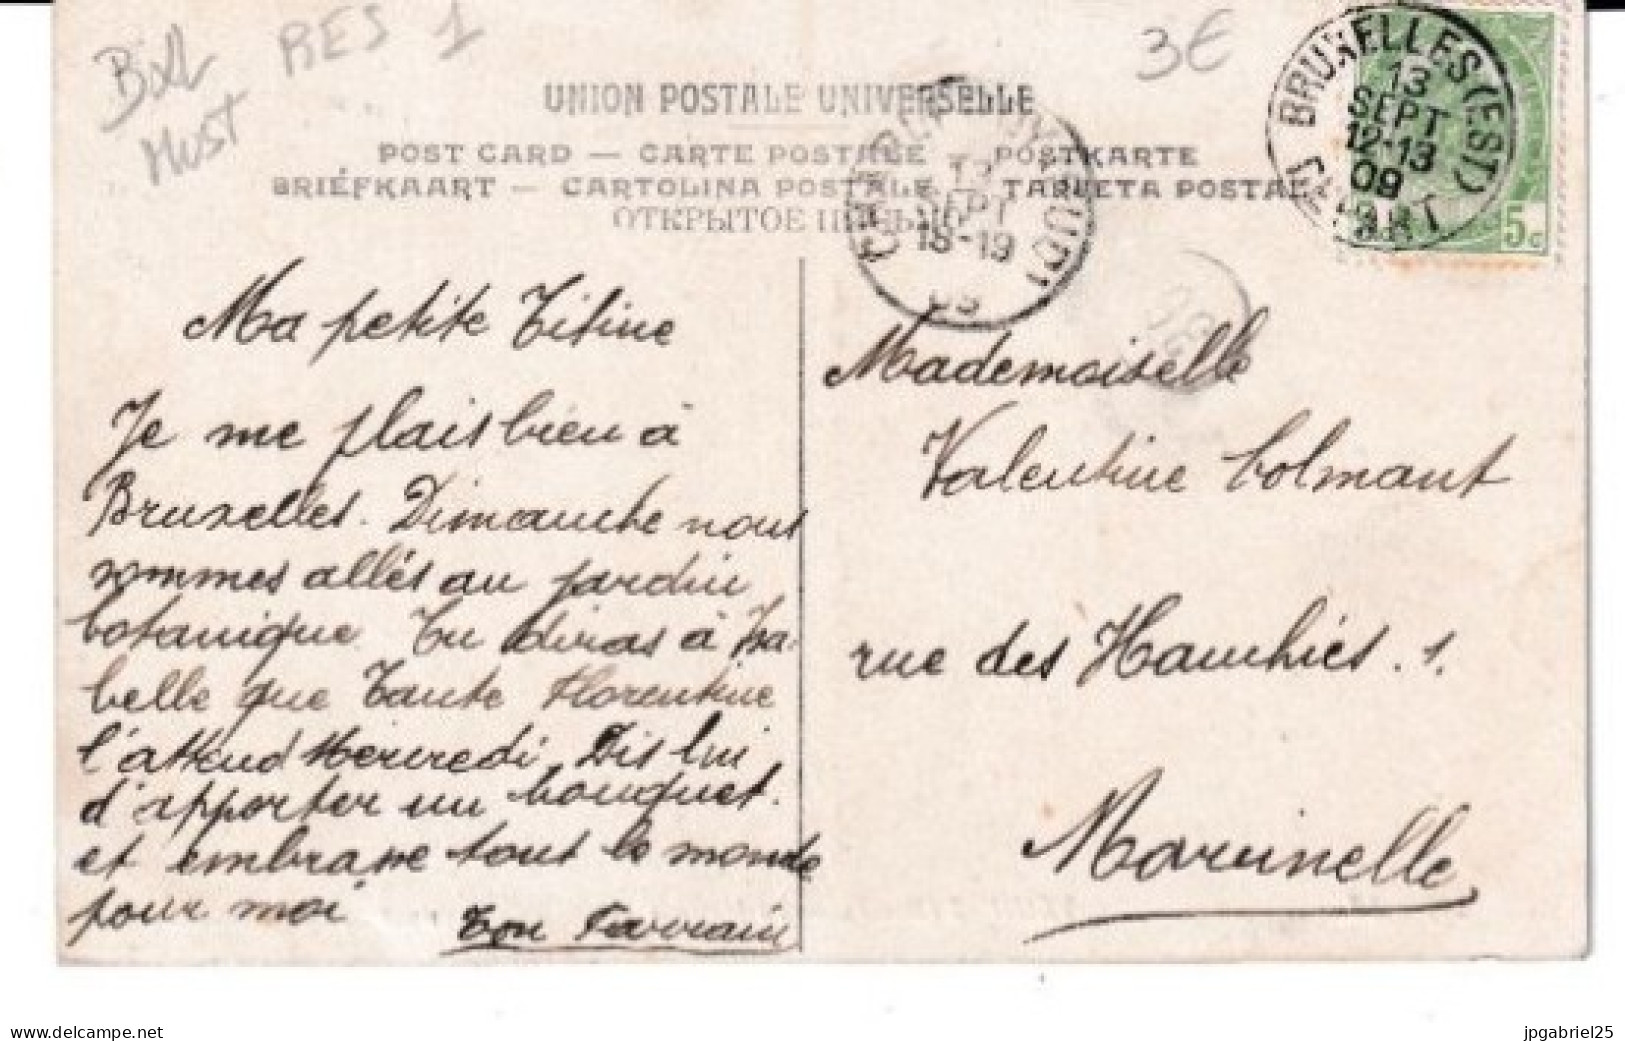 Bxl
Must
RES 1
3€
UNION POSTALE UNIVERSELLE
POST CARD — CARTE POSTALE — POSTKARTE
BRIÉFKAART — CARTOLINA POSTALE — TARJETA POSTAL
ОТКРЫТОЕ
BRUXELLES (EST)
13
SEPT
12-13
09
5c
13
SEPT
18-19
09
Ma petite Titine
Je me plais bien à
Bruxelles. Dimanche nous
sommes allés au jardin
botanique. Tu diras à Isa-
belle que Tante Florentine
l'attend Mercredi. Dis lui
d'apporter un bouquet.
et embrasse tout le monde
pour moi
Ton Parrain
Mademoiselle
Valentine Colmant
rue des Hauchiés. 1.
Marcinelle
www.delcampe.net
jpgabriel25